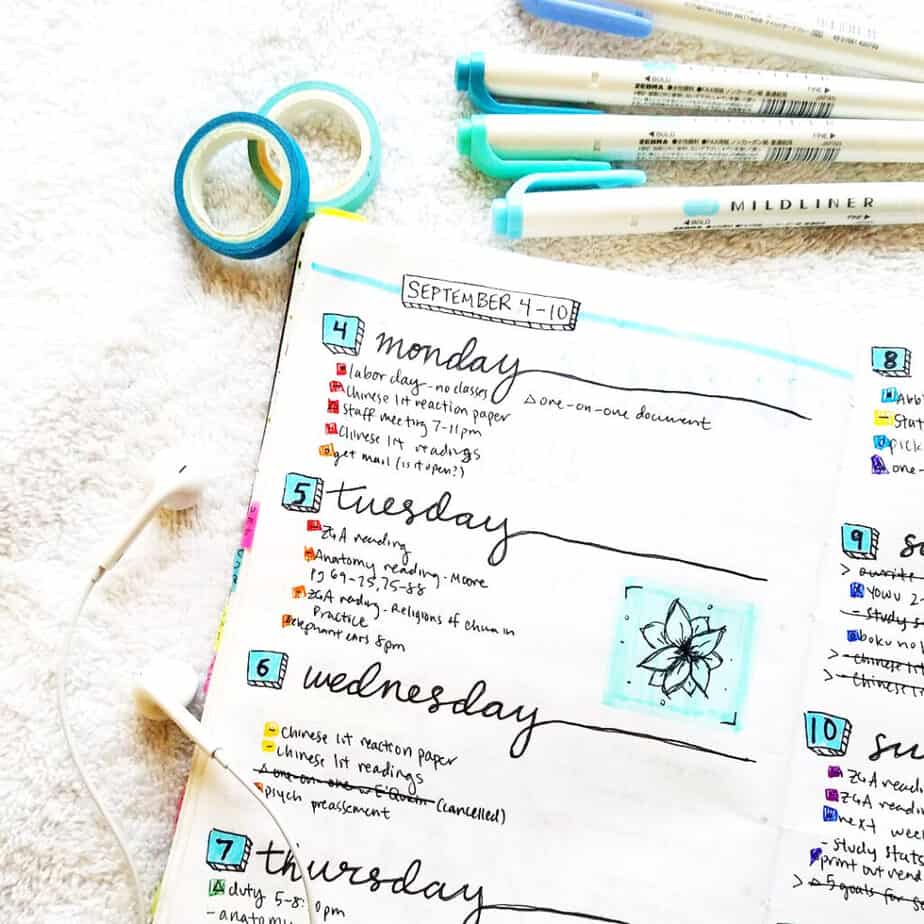 ◄ BOLD
FINE ►
ZEBRA
◄ BOLD
FINE ►
ZEBRA
MILDLINER
◄ BOLD
FINE ►
SEPTEMBER 4-10
4 monday
labor day - no classes
Chinese lit reaction paper
Staff meeting 7-11pm
Chinese lit readings
get mail (is it open?)
△ one-on-one document
5 tuesday
ZGA reading
Anatomy reading - Moore
pg 69-75, 75-88
ZGA reading - Religions of China in
Practice
elephant ears 8pm
6 wednesday
Chinese lit reaction paper
Chinese lit readings
△ one-on-one w E'Quan (cancelled)
psych preassement
7 thursday
duty 5-8
pm
- anatomy
8
Abb
Stat
pick
one-
9 su
YOWU 2-
- study s
boku no
> Chinese lit
> Chinese l
10 su
ZGA readi
ZGA readin
next week
- study stats
print out rend
> △ 5 goals for s